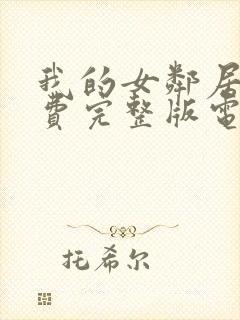 我的女鄰居
費完整版電
托希尔